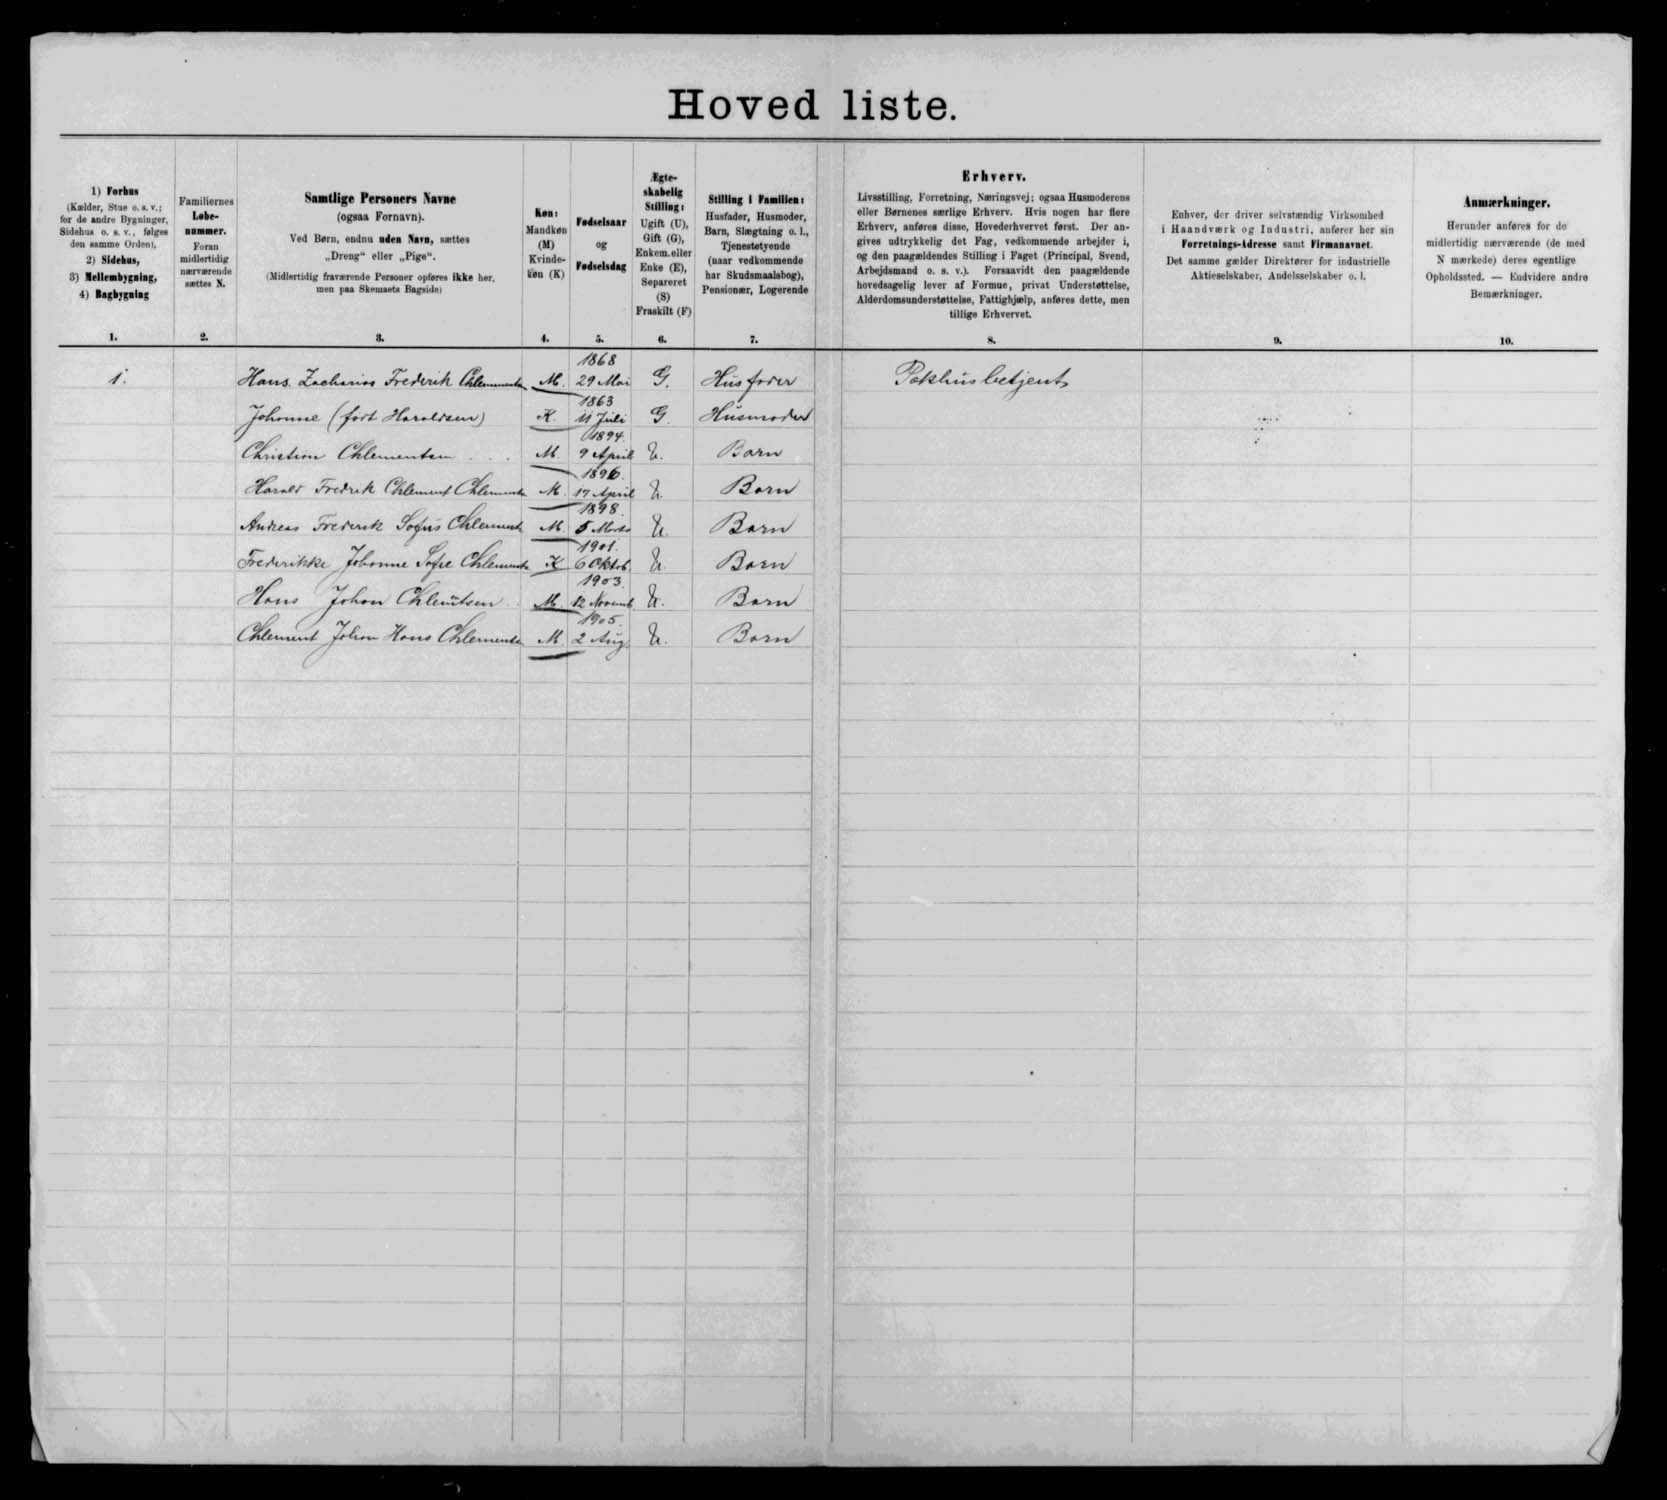 Hoved liste.
1) Forhus
(Kælder, Stue o. s. v.;
for de andre Bygninger,
Sidehus o. s. v., følges
den samme Orden),
2) Sidehus,
3) Mellembygning,
4) Bagbygning
1.
Familiernes
Løbe-
nummer.
Foran
midlertidig
nærværende
sættes N.
2.
Samtlige Personers Navne
(ogsaa Fornavn).
Ved Børn, endnu uden Navn, sættes
„Dreng“ eller „Pige“.
(Midlertidig fraværende Personer opføres ikke her,
men paa Skemaets Bagside)
3.
Køn:
Mandkøn
(M)
Kvinde-
køn (K)
4.
Fødselsaar
og
Fødselsdag
5.
Ægte-
skabelig
Stilling:
Ugift (U),
Gift (G),
Enkem. eller
Enke (E),
Separeret
(S)
Fraskilt (F)
6.
Stilling i Familien:
Husfader, Husmoder,
Barn, Slægtning o. l.,
Tjenestetyende
(naar vedkommende
har Skudsmaalsbog),
Pensionær, Logerende
7.
Erhverv.
Livsstilling, Forretning, Næringsvej; ogsaa Husmoderens
eller Børnenes særlige Erhverv. Hvis nogen har flere
Erhverv, anføres disse, Hovederhvervet først. Der an-
gives udtrykkelig det Fag, vedkommende arbejder i,
og den paagældendes Stilling i Faget (Principal, Svend,
Arbejdsmand o. s. v.). Forsaavidt den paagældende
hovedsagelig lever af Formue, privat Understøttelse,
Alderdomsunderstøttelse, Fattighjælp, anføres dette, men
tillige Erhvervet.
8.
Enhver, der driver selvstændig Virksomhed
i Haandværk og Industri, anfører her sin
Forretnings-Adresse samt Firmanavnet.
Det samme gælder Direktører for industrielle
Aktieselskaber, Andelsselskaber o. l.
9.
Anmærkninger.
Herunder anføres for de
midlertidig nærværende (de med
N mærkede) deres egentlige
Opholdssted. — Endvidere andre
Bemærkninger.
10.
1. Hans Zacharias Frederik Chlementsen M. 1868 29 Mai G. Husfader Pakhusbetjent
Johanne (født Haraldsen) K. 1863 11 Juli G. Husmoder
Christian Chlementsen M. 1894. 9 April U. Barn
Harald Fredrik Chlement Chlements M. 1896. 17 April U. Barn
Andreas Frederik Sofus Chlements M. 1898. 5 Marts U. Barn
Frederikke Johanne Sofie Chlements K 1901. 6 Oktob. U. Barn
Hans Johan Chlemtsen M. 1903. 12 Novemb. U. Barn
Chlement Johan Hans Chlements M. 1905. 2 Aug. U. Barn